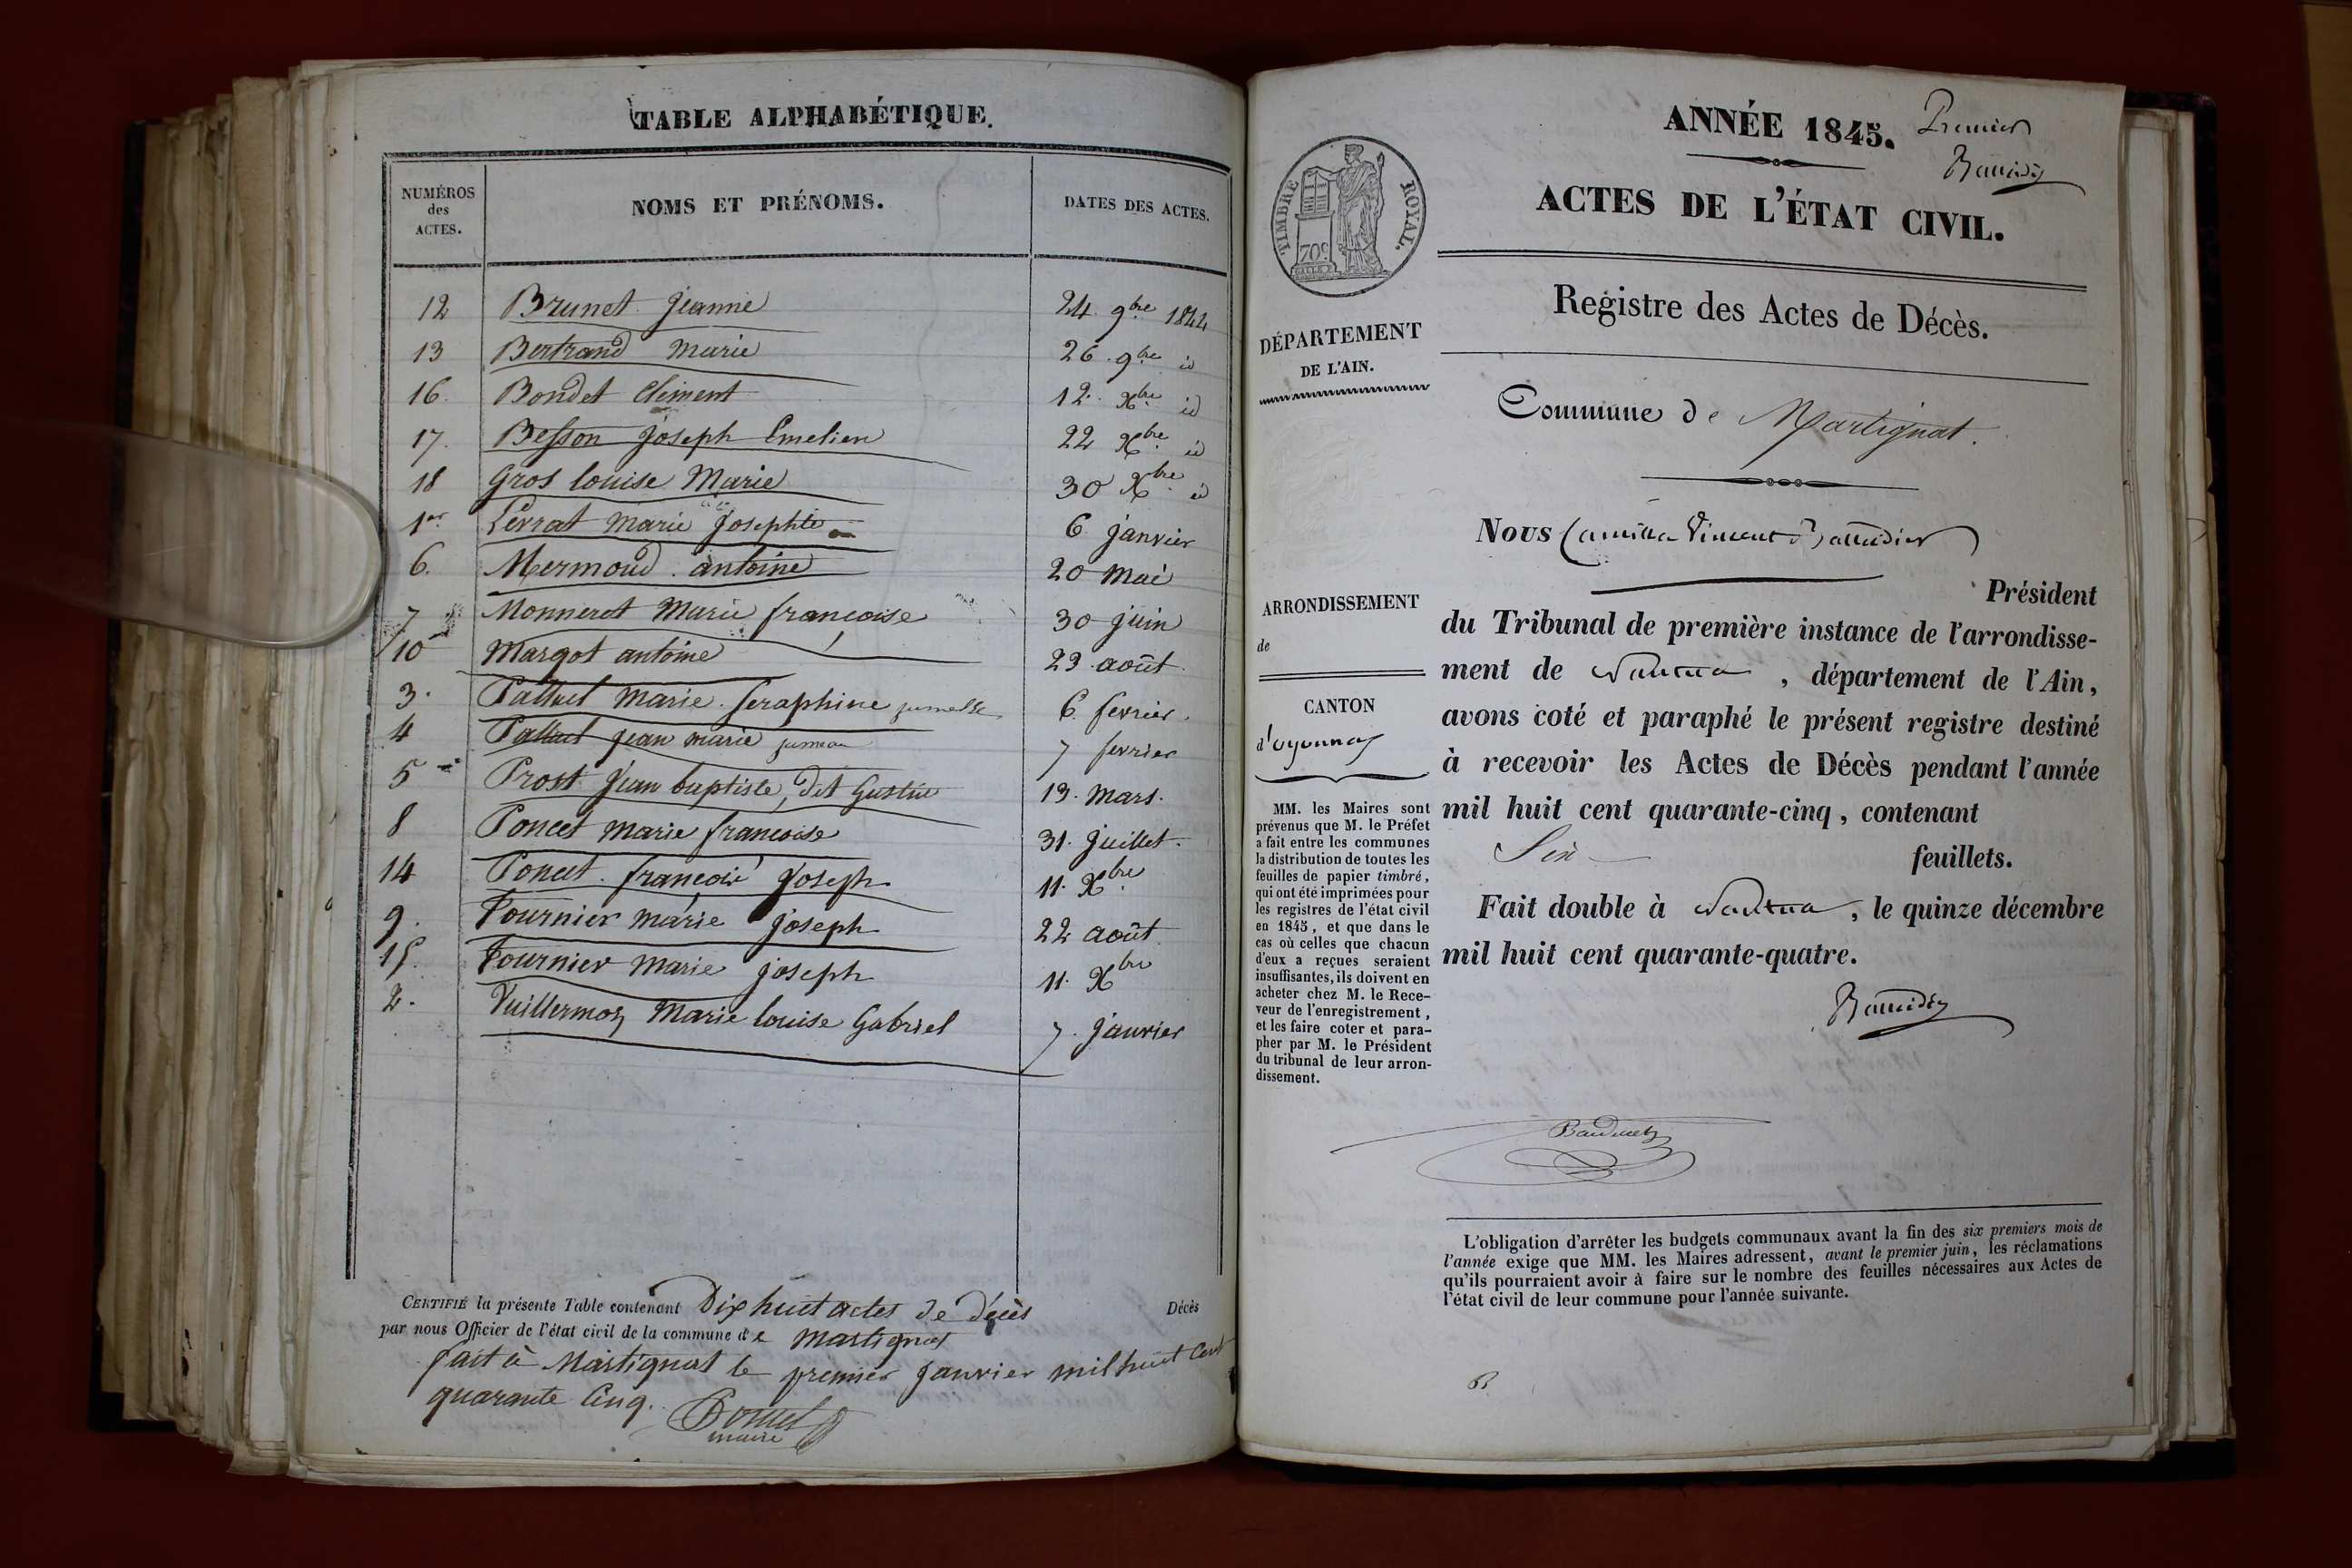 TABLE ALPHABÉTIQUE.
NUMÉROS des ACTES. NOMS ET PRÉNOMS. DATES DES ACTES.
12 Brunet Jeanne 24 9bre 1844
13 Bertrand Marie 26 9bre id
16. Bondet Clément 12. Xbre id
17. Besson Joseph Emelien 22 Xbre id
18 Gros louise Marie 30 Xbre id
1er Levrat Marie Josephte 6 janvier
6. Mermoud antoine 20 mai
7 Monneret Marie françoise 30 juin
10 Margot antoine 23 août
3. Pallud Marie Seraphine jumelle 6. fevrier.
4 Pallud jean marie jumeau 7 fevrier
5 Prost jean baptiste, dit 13. Mars.
8 Poncet Marie françoise 31. juillet.
14 Poncet françois joseph 11. Xbre
9. Tournier marie joseph 22 août
15. Tournier Marie joseph 11. Xbre
2. Vuillermoz Marie louise Gabriel 7. janvier
CERTIFIÉ la présente Table contenant Dix huit actes de décès Décès
par nous Officier de l'état civil de la commune de Martignat
fait à Martignat le premier janvier mil huit Cent
quarante Cinq.
maire
ANNÉE 1845. Premier
ACTES DE L'ÉTAT CIVIL.
Registre des Actes de Décès.
TIMBRE ROYAL.
70c
DÉPARTEMENT
DE L'AIN.
Commune de Martignat.
ARRONDISSEMENT
de
CANTON
d'oyonnax
MM. les Maires sont
prévenus que M. le Préfet
a fait entre les communes
la distribution de toutes les
feuilles de papier timbré,
qui ont été imprimées pour
les registres de l'état civil
en 1845, et que dans le
cas où celles que chacun
d'eux a reçues seraient
insuffisantes, ils doivent en
acheter chez M. le Rece-
veur de l'enregistrement,
et les faire coter et para-
pher par M. le Président
du tribunal de leur arron-
dissement.
Nous Camille Vincent
Président
du Tribunal de première instance de l'arrondisse-
ment de Nantua, département de l'Ain,
avons coté et paraphé le présent registre destiné
à recevoir les Actes de Décès pendant l'année
mil huit cent quarante-cinq, contenant
Six feuillets.
Fait double à Nantua, le quinze décembre
mil huit cent quarante-quatre.
L'obligation d'arrêter les budgets communaux avant la fin des six premiers mois de
l'année exige que MM. les Maires adressent, avant le premier juin, les réclamations
qu'ils pourraient avoir à faire sur le nombre des feuilles nécessaires aux Actes de
l'état civil de leur commune pour l'année suivante.